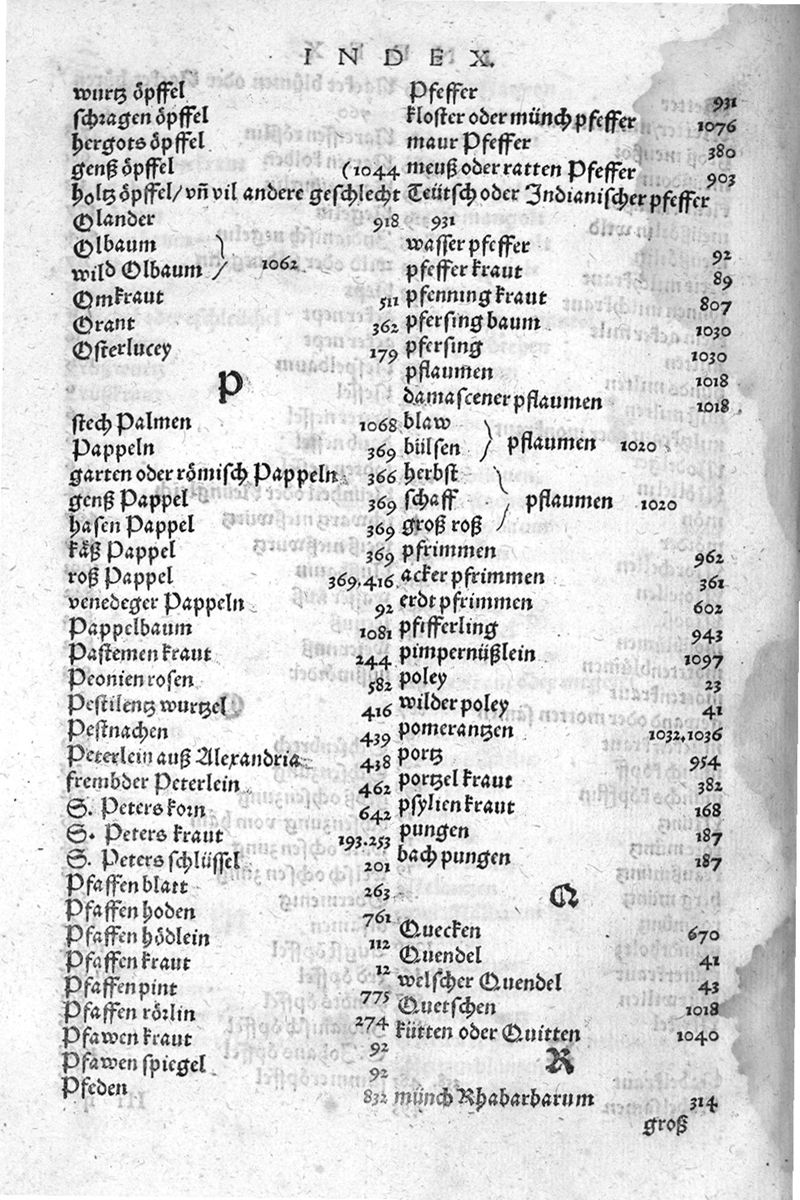 INDEX.
wurtz öpffel
schragen öpffel
hergots öpffel
genß öpffel (1044
holtz öpffel/ vñ vil andere geschlecht
Olander 918
Olbaum
wild Olbaum } 1062
Omkraut 511
Orant 362
Osterlucey 179
P
stech Palmen 1068
Pappeln 369
garten oder römisch Pappeln 366
genß Pappel 369
hasen Pappel 369
käß Pappel 369
roß Pappel 369.416
venedeger Pappeln 92
Pappelbaum 1081
Pastemen kraut 244
Peonien rosen 582
Pestilentz wurtzel 416
Pestnachen 439
Peterlein auß Alexandria 438
frembder Peterlein 462
S. Peters korn 642
S. Peters kraut 193.253
S. Peters schlüssel 201
Pfaffen blatt 263
Pfaffen hoden 761
Pfaffen hödlein 112
Pfaffen kraut 12
Pfaffen pint 775
Pfaffen rörlin 274
Pfawen kraut 92
Pfawen spiegel 92
Pfeden 832
Pfeffer 931
kloster oder münch pfeffer 1076
maur Pfeffer 380
meuß oder ratten Pfeffer 903
Teütsch oder Indianischer pfeffer
931
wasser pfeffer 92
pfeffer kraut 89
pfenning kraut 807
pfersing baum 1030
pfersing 1030
pflaumen 1018
damascener pflaumen 1018
blaw
bülsen } pflaumen 1020
herbst
schaff } pflaumen 1020
groß roß
pfrimmen 962
acker pfrimmen 361
erdt pfrimmen 602
pfifferling 943
pimpernüßlein 1097
poley 23
wilder poley 41
pomerantzen 1032.1036
portz 954
portzel kraut 382
psylien kraut 168
pungen 187
bach pungen 187
Q
Quecken 670
Quendel 41
welscher Quendel 43
Quetschen 1018
kütten oder Quitten 1040
R
münch Rhabarbarum 314
groß